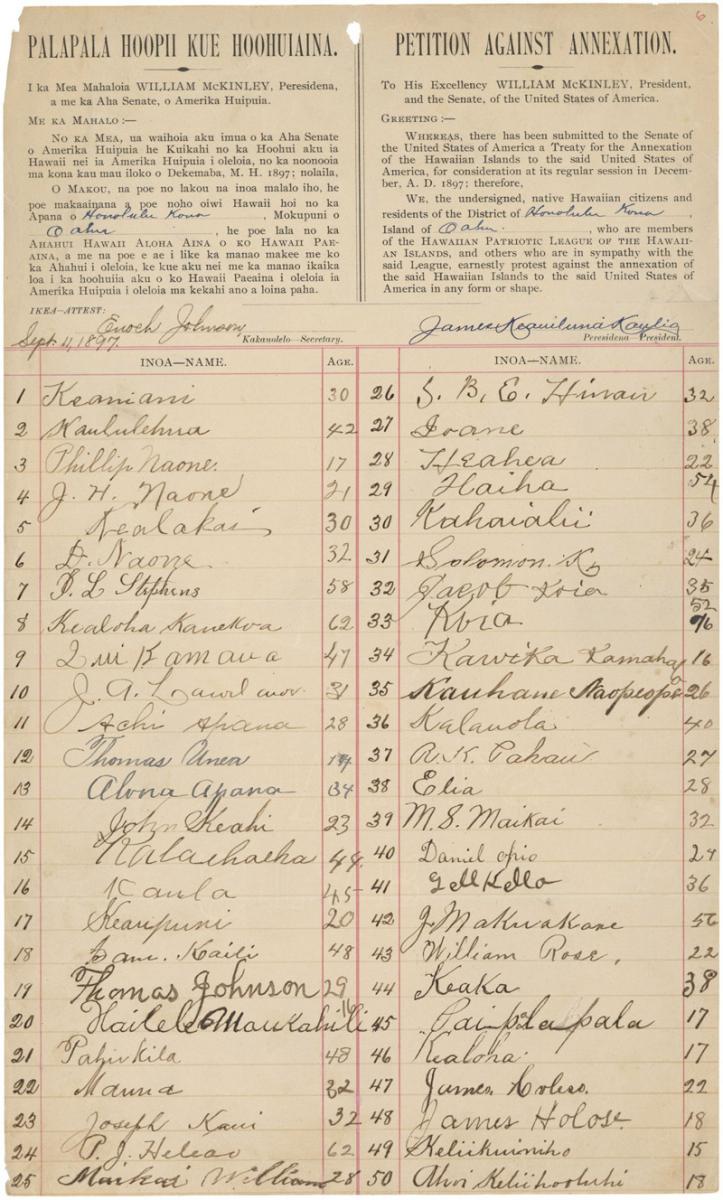 6
PALAPALA HOOPII KUE HOOHUIAINA.
I ka Mea Mahaloia WILLIAM McKINLEY, Peresidena,
a me ka Aha Senate, o Amerika Huipuia.
ME KA MAHALO :—
NO KA MEA, ua waihoia aku imua o ka Aha Senate
o Amerika Huipuia he Kuikahi no ka Hoohui aku ia
Hawaii nei ia Amerika Huipuia i oleloia, no ka noonooia
ma kona kau mau iloko o Dekemaba, M. H. 1897; nolaila,
O MAKOU, na poe no lakou na inoa malalo iho, he
poe makaainana a poe noho oiwi Hawaii hoi no ka
Apana o Honolulu Kona, Mokupuni o
Oahu, he poe lala no ka
AHAHUI HAWAII ALOHA AINA O KO HAWAII PAE-
AINA, a me na poe e ae i like ka manao makee me ko
ka Ahahui i oleloia, ke kue aku nei me ka manao ikaika
loa i ka hoohuiia aku o ko Hawaii Paeaina i oleloia ia
Amerika Huipuia i oleloia ma kekahi ano a loina paha.
IKEA—ATTEST:
Enoch Johnson
Sept. 11, 1897. Kakauolelo—Secretary.
PETITION AGAINST ANNEXATION.
To His Excellency WILLIAM McKINLEY, President,
and the Senate, of the United States of America.
GREETING :—
WHEREAS, there has been submitted to the Senate of
the United States of America a Treaty for the Annexation
of the Hawaiian Islands to the said United States of
America, for consideration at its regular session in Decem-
ber, A. D. 1897; therefore,
WE, the undersigned, native Hawaiian citizens and
residents of the District of Honolulu Kona,
Island of Oahu, who are members
of the HAWAIIAN PATRIOTIC LEAGUE OF THE HAWAII-
AN ISLANDS, and others who are in sympathy with the
said League, earnestly protest against the annexation of
the said Hawaiian Islands to the said United States of
America in any form or shape.
James Keauiluna Kaulia
Peresidena—President.
INOA—NAME. AGE.
1 Keaniani 30
2 Kaululehua 42
3 Phillip Naone. 17
4 J. H. Naone 21
5 Kealakai 30
6 D. Naone 32
7 L Stephens 58
8 Kealoha Kanekoa 62
9 Kamaua 47
10 J. A. 31
11 Achi Apana 28
12 Thomas Unea
13 Alona Apana 34
14 John Keahi 23
15 44
16 Kaula 45
17 Keaupuni 20
18 Sam. Kaili 48
19 Thomas Johnson 29
20 Hailele Maukahili 16
21 Pahukila 48
22 Manna 32
23 Joseph Kaui 32
24 P. J. Heleao 62
25 Maikai William 28
INOA—NAME. AGE.
26 S. B. E. 32
27 Ioane 38
28 Heahea 22
29 Haiha 54
30 Kahaialii 36
31 Solomon. K 24
32 Jacob Koia 35
33 Koia 52
34 Kawika Kamaha 16
35 Kauhane Naopeope 26
36 Kalauola 40
37 R. K. Pahau 27
38 Elia 28
39 M. S. Maikai 32
40 Daniel opio
41 36
42 J. Makuakane 56
43 William Rose, 22
44 Keaka 38
45 Paipalapala 17
46 Kealoha 17
47 James 22
48 James Holose. 18
49 15
50 Ahoi Keliihooluhi 18